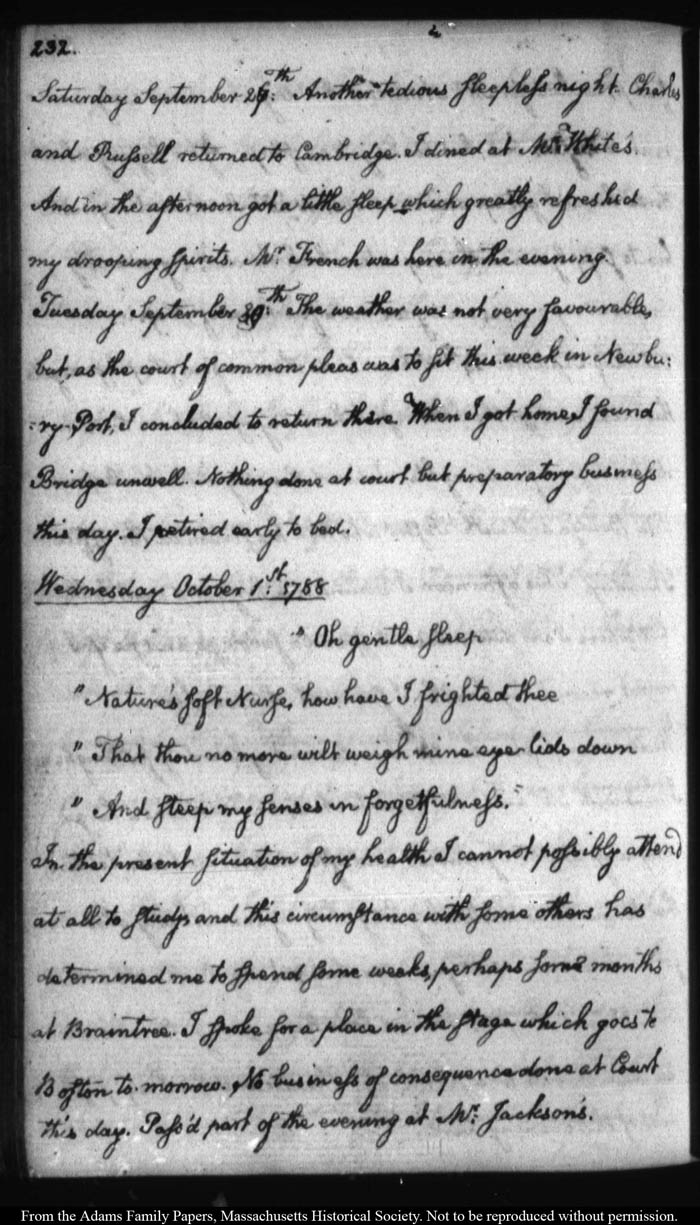 232.
Saturday September 27.th Another tedious sleepless night. Charles
and Russell returned to Cambridge. I dined at Mr. White's.
And in the afternoon got a little sleep which greatly refreshed
my drooping spirits. Mr. French was here in the evening.
Tuesday September 30.th The weather was not very favourable,
but, as the court of common pleas was to sit this week in Newbu:
:ry-Port, I concluded to return there. When I got home, I found
Bridge unwell. Nothing done at court but preparatory business
this day. I retired early to bed.
Wednesday October 1.st 1788
"Oh gentle sleep
"Nature's soft Nurse, how have I frighted thee
"That thou no more wilt weigh mine eye-lids down
"And steep my senses in forgetfulness."
In the present situation of my health I cannot possibly attend
at all to study, and this circumstance with some others has
determined me to spend some weeks, perhaps some months
at Braintree. I spoke for a place in the stage which goes to
Boston to-morrow. No business of consequence done at Court
this day. Pass'd part of the evening at Mr. Jackson's.
From the Adams Family Papers, Massachusetts Historical Society. Not to be reproduced without permission.